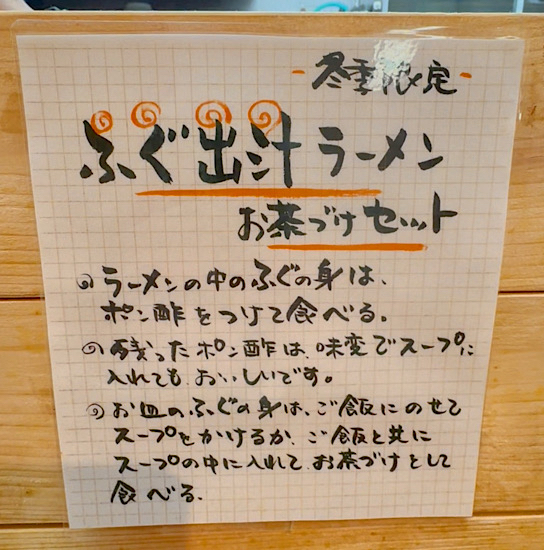 -冬季限定-
ふぐ出汁ラーメン
お茶づけセット
ラーメンの中のふぐの身は、
ポン酢をつけて食べる。
残ったポン酢は、味変でスープに
入れても、おいしいです。
お皿のふぐの身は、ご飯にのせて
スープをかけるか、ご飯と共に
スープの中に入れて、お茶づけとして
食べる。